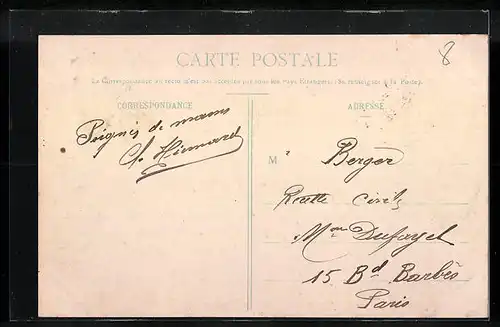 8
CARTE POSTALE
La Correspondance au recto n'est pas acceptée par tous les Pays Étrangers (Se renseigner à la Poste)
CORRESPONDANCE
ADRESSE
Poignés de mains
Ch. Hémard
Mr Berger
Mon Dufayel
15 Bd Barbès
Paris